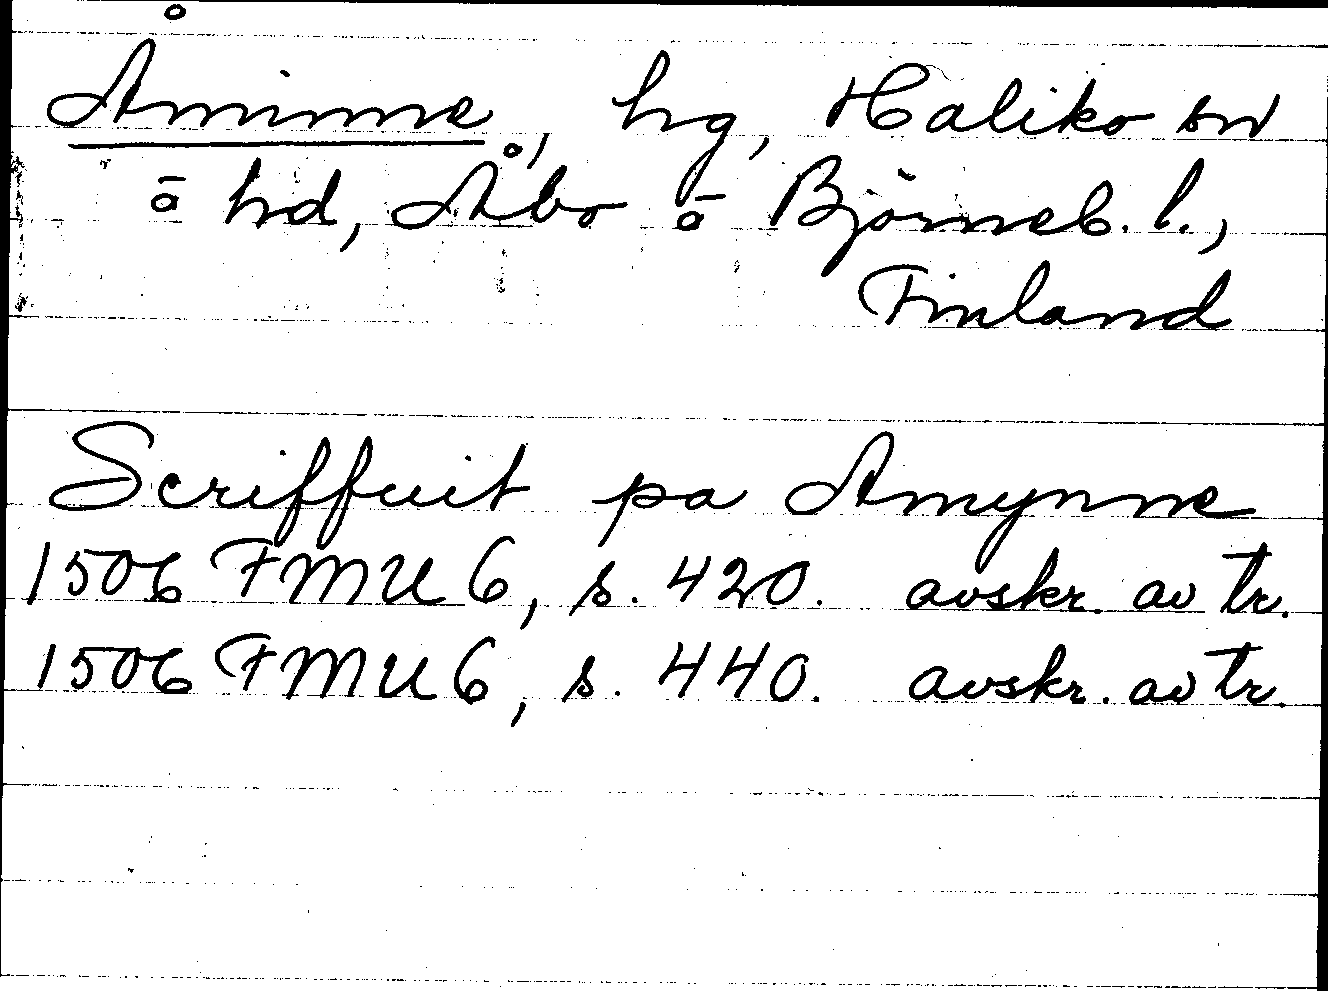 Åminne, hg, Haliko sn
o hd, Åbo o Björneb. l.,
Finland
Scriffuit pa Amynne
1506 FMU 6, s. 420. avskr. av tr.
1506 FMU 6, s. 440. avskr. av tr.